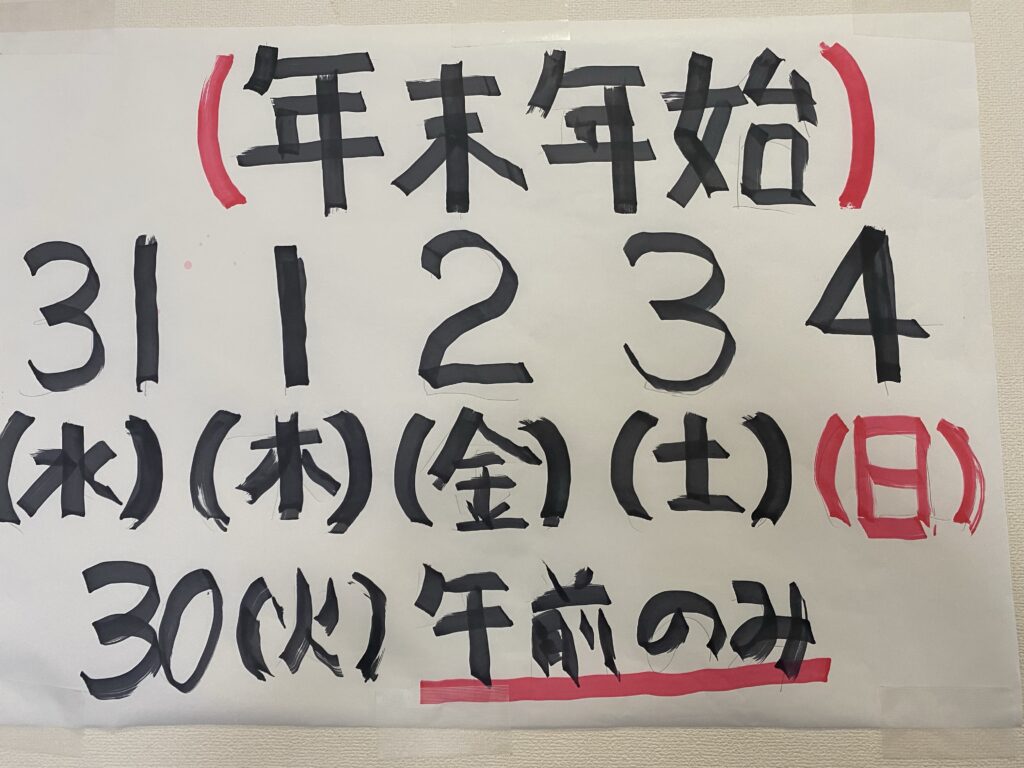 (年末年始)
31 1 2 3 4
(水) (木) (金) (土) (日)
30(火) 午前のみ